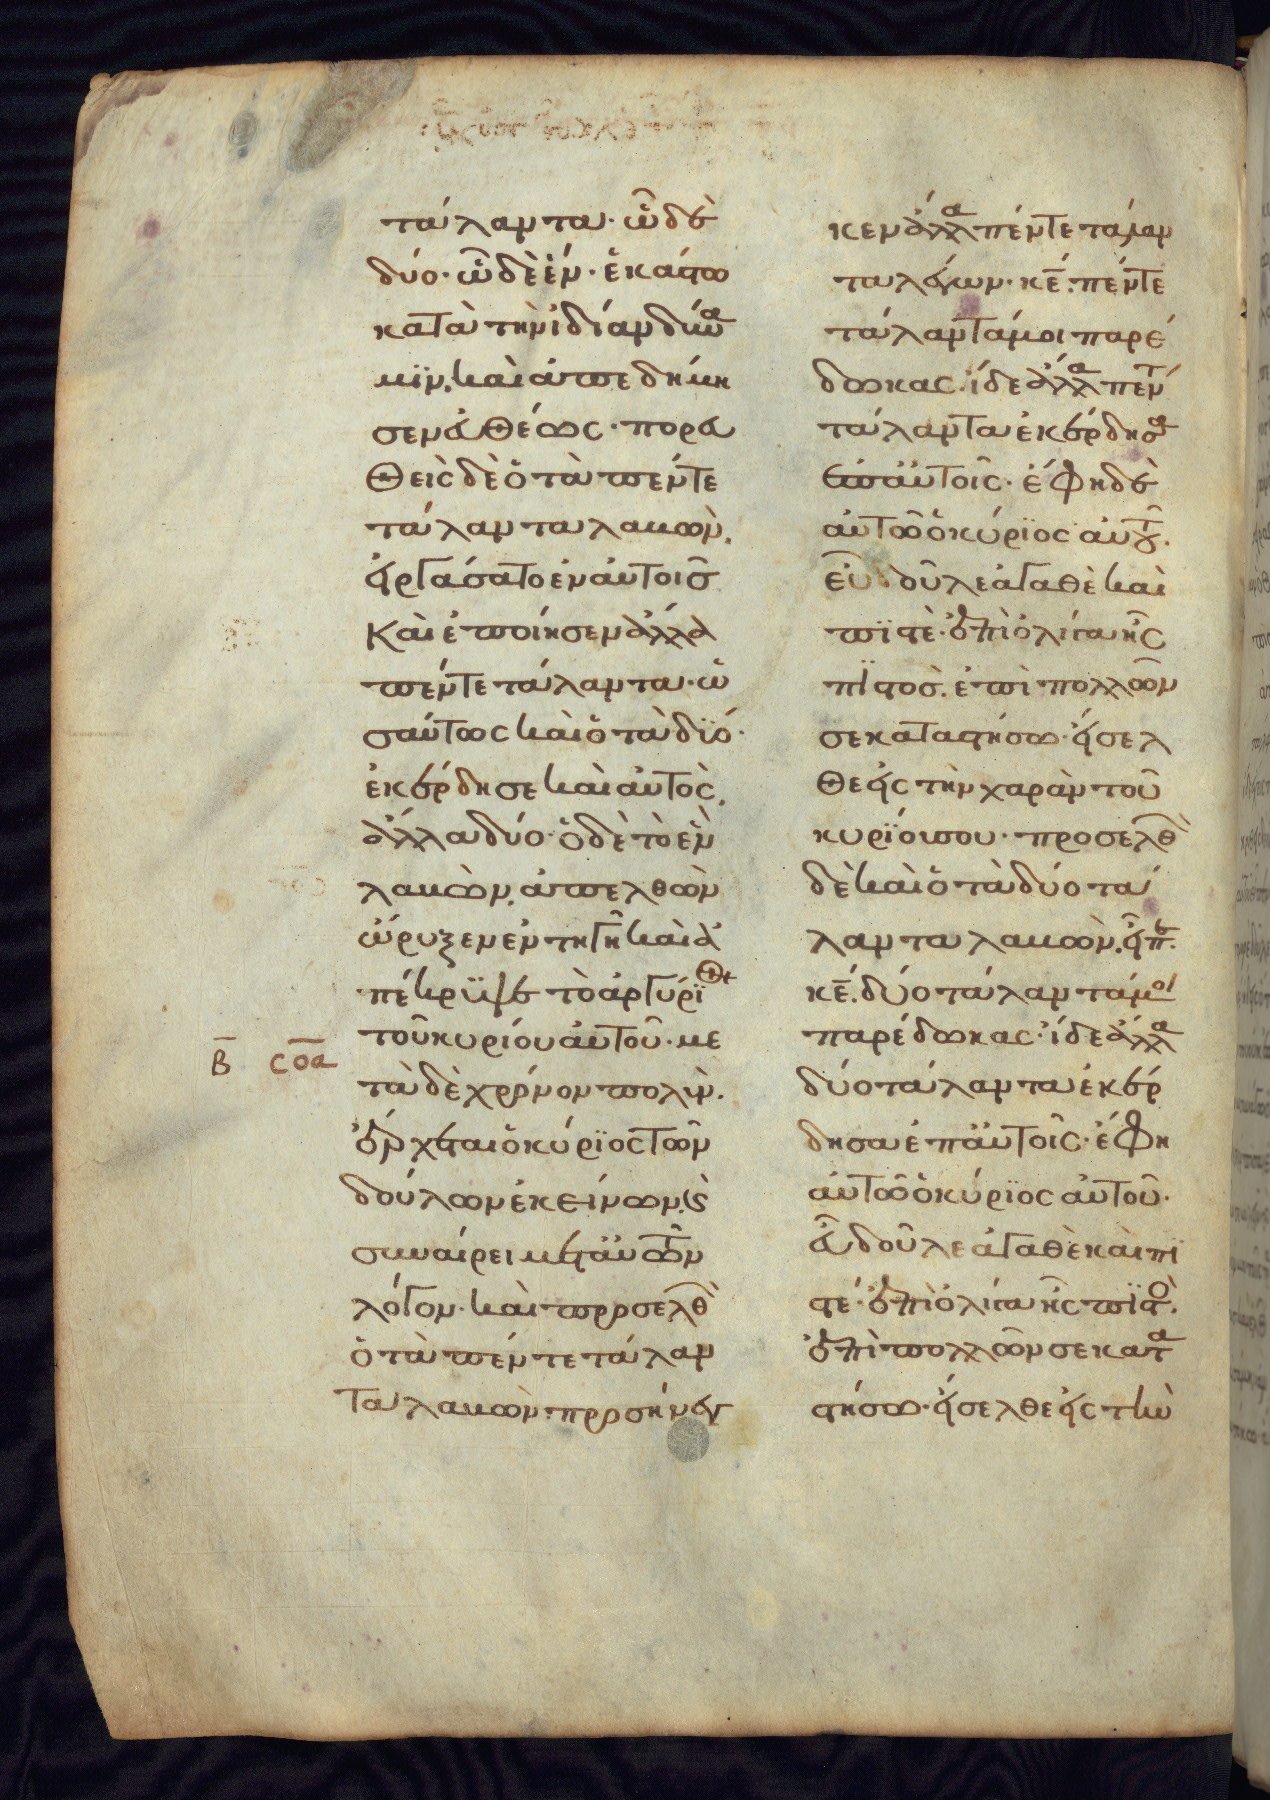 τάλαντα· ὧ δὲ
δύο· ὧ δὲ ἕν· ἑκάστω
κατὰ τὴν ἰδίαν δύνα
μϊν, καὶ ἀπεδήμη
σεν εὐθέως· πορευ
θεὶς δὲ ὁ τὰ πέντε
τάλαντα λαβὼν,
εἰργάσατο ἐν αὐτοῖς
Καὶ ἐποίησεν ἄλλα
πέντε τάλαντα· ὡ
σαύτως καὶ ὁ τὰ δϊό·
ἐκέρδησε καὶ αὐτὸς,
ἄλλα δύο· ὁ δὲ τὸ ἓν
λαβὼν, ἀπελθὼν
ὤρυξεν ἐν τῆ γῆ καὶ ἀ
πέκρϋψε τὸ ἀργύρϊον
τοῦ κυρίου αὐτοῦ· με
Β σοα
τὰ δὲ χρόνον πολὺν.
ἔρχεται ὁ κύρϊος τῶν
δούλων ἐκείνων, καὶ
συναίρει μετ αὐτῶν
λόγον· καὶ προσελθὼν
ὁ τὰ πέντε τάλαν
τα λαβὼν· προσήνεγ
κεν ἄλλα πέντε τάλαν
τα λέγων· κε. πέντε
τάλαντά μοι παρέ
δωκας· ἴδε ἄλλα πέντ
τάλαντα ἐκέρδησα
ἐπ αὐτοῖς· ἔφη δὲ
αὐτῶ ὁ κύρϊος αὐτοῦ.
εὖ δοῦλε ἀγαθὲ καὶ
πϊστέ· ἐπὶ ὀλίγα ἦς
πϊστός. ἐπὶ πολλῶν
σε καταστήσω· εἴσελ
θε εἰς τὴν χαρὰν τοῦ
κυρϊου σου· προσελθὼν
δὲ καὶ ὁ τὰ δύο τά
λαντα λαβὼν, εἶπε.
κε. δύο τάλαντά μοι
παρέδωκας· ἴδε ἄλλα
δύο τάλαντα ἐκέρ
δησα ἐπ αὐτοῖς· ἔφη
αὐτῶ ὁ κύρϊος αὐτοῦ·
εὖ δοῦλε ἀγαθὲ καὶ πϊ
στέ· ἐπὶ ὀλίγα ἦς πϊστὸ.
ἐπὶ πολλῶν σε κατα
στήσω· εἴσελθε εἰς τὴν